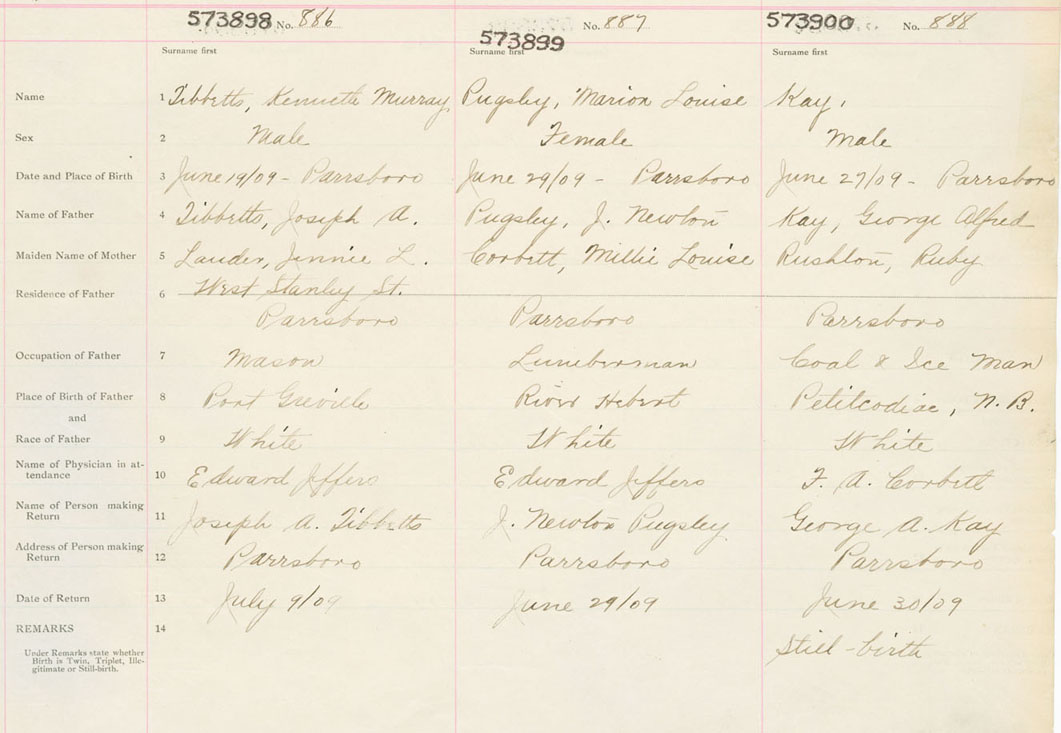 573898 No. 886 573899 No. 887 573900 No. 888
Surname first Surname first Surname first
Name 1 Tibbetts, Kenneth Murray Pugsley, Marion Louise Kay,
Sex 2 Male Female Male
Date and Place of Birth 3 June 19/09 - Parrsboro June 29/09 - Parrsboro June 27/09 - Parrsboro
Name of Father 4 Tibbetts, Joseph A. Pugsley, J. Newton Kay, George Alfred
Maiden Name of Mother 5 Lauder, Jennie L. Corbett, Millie Louise Rushton, Ruby
Residence of Father 6 West Stanley St.
Parrsboro Parrsboro Parrsboro
Occupation of Father 7 Mason Lumberman Coal & Ice Man
Place of Birth of Father 8 Port Greville River Hebert Petitcodiac, N.B.
and
Race of Father 9 White White White
Name of Physician in at-
tendance 10 Edward Jeffers Edward Jeffers F. A. Corbett
Name of Person making
Return 11 Joseph A. Tibbetts J. Newton Pugsley George A. Kay
Address of Person making
Return 12 Parrsboro Parrsboro Parrsboro
Date of Return 13 July 9/09 June 29/09 June 30/09
REMARKS 14
Still-birth
Under Remarks state whether
Birth is Twin, Triplet, Ille-
gitimate or Still-birth.